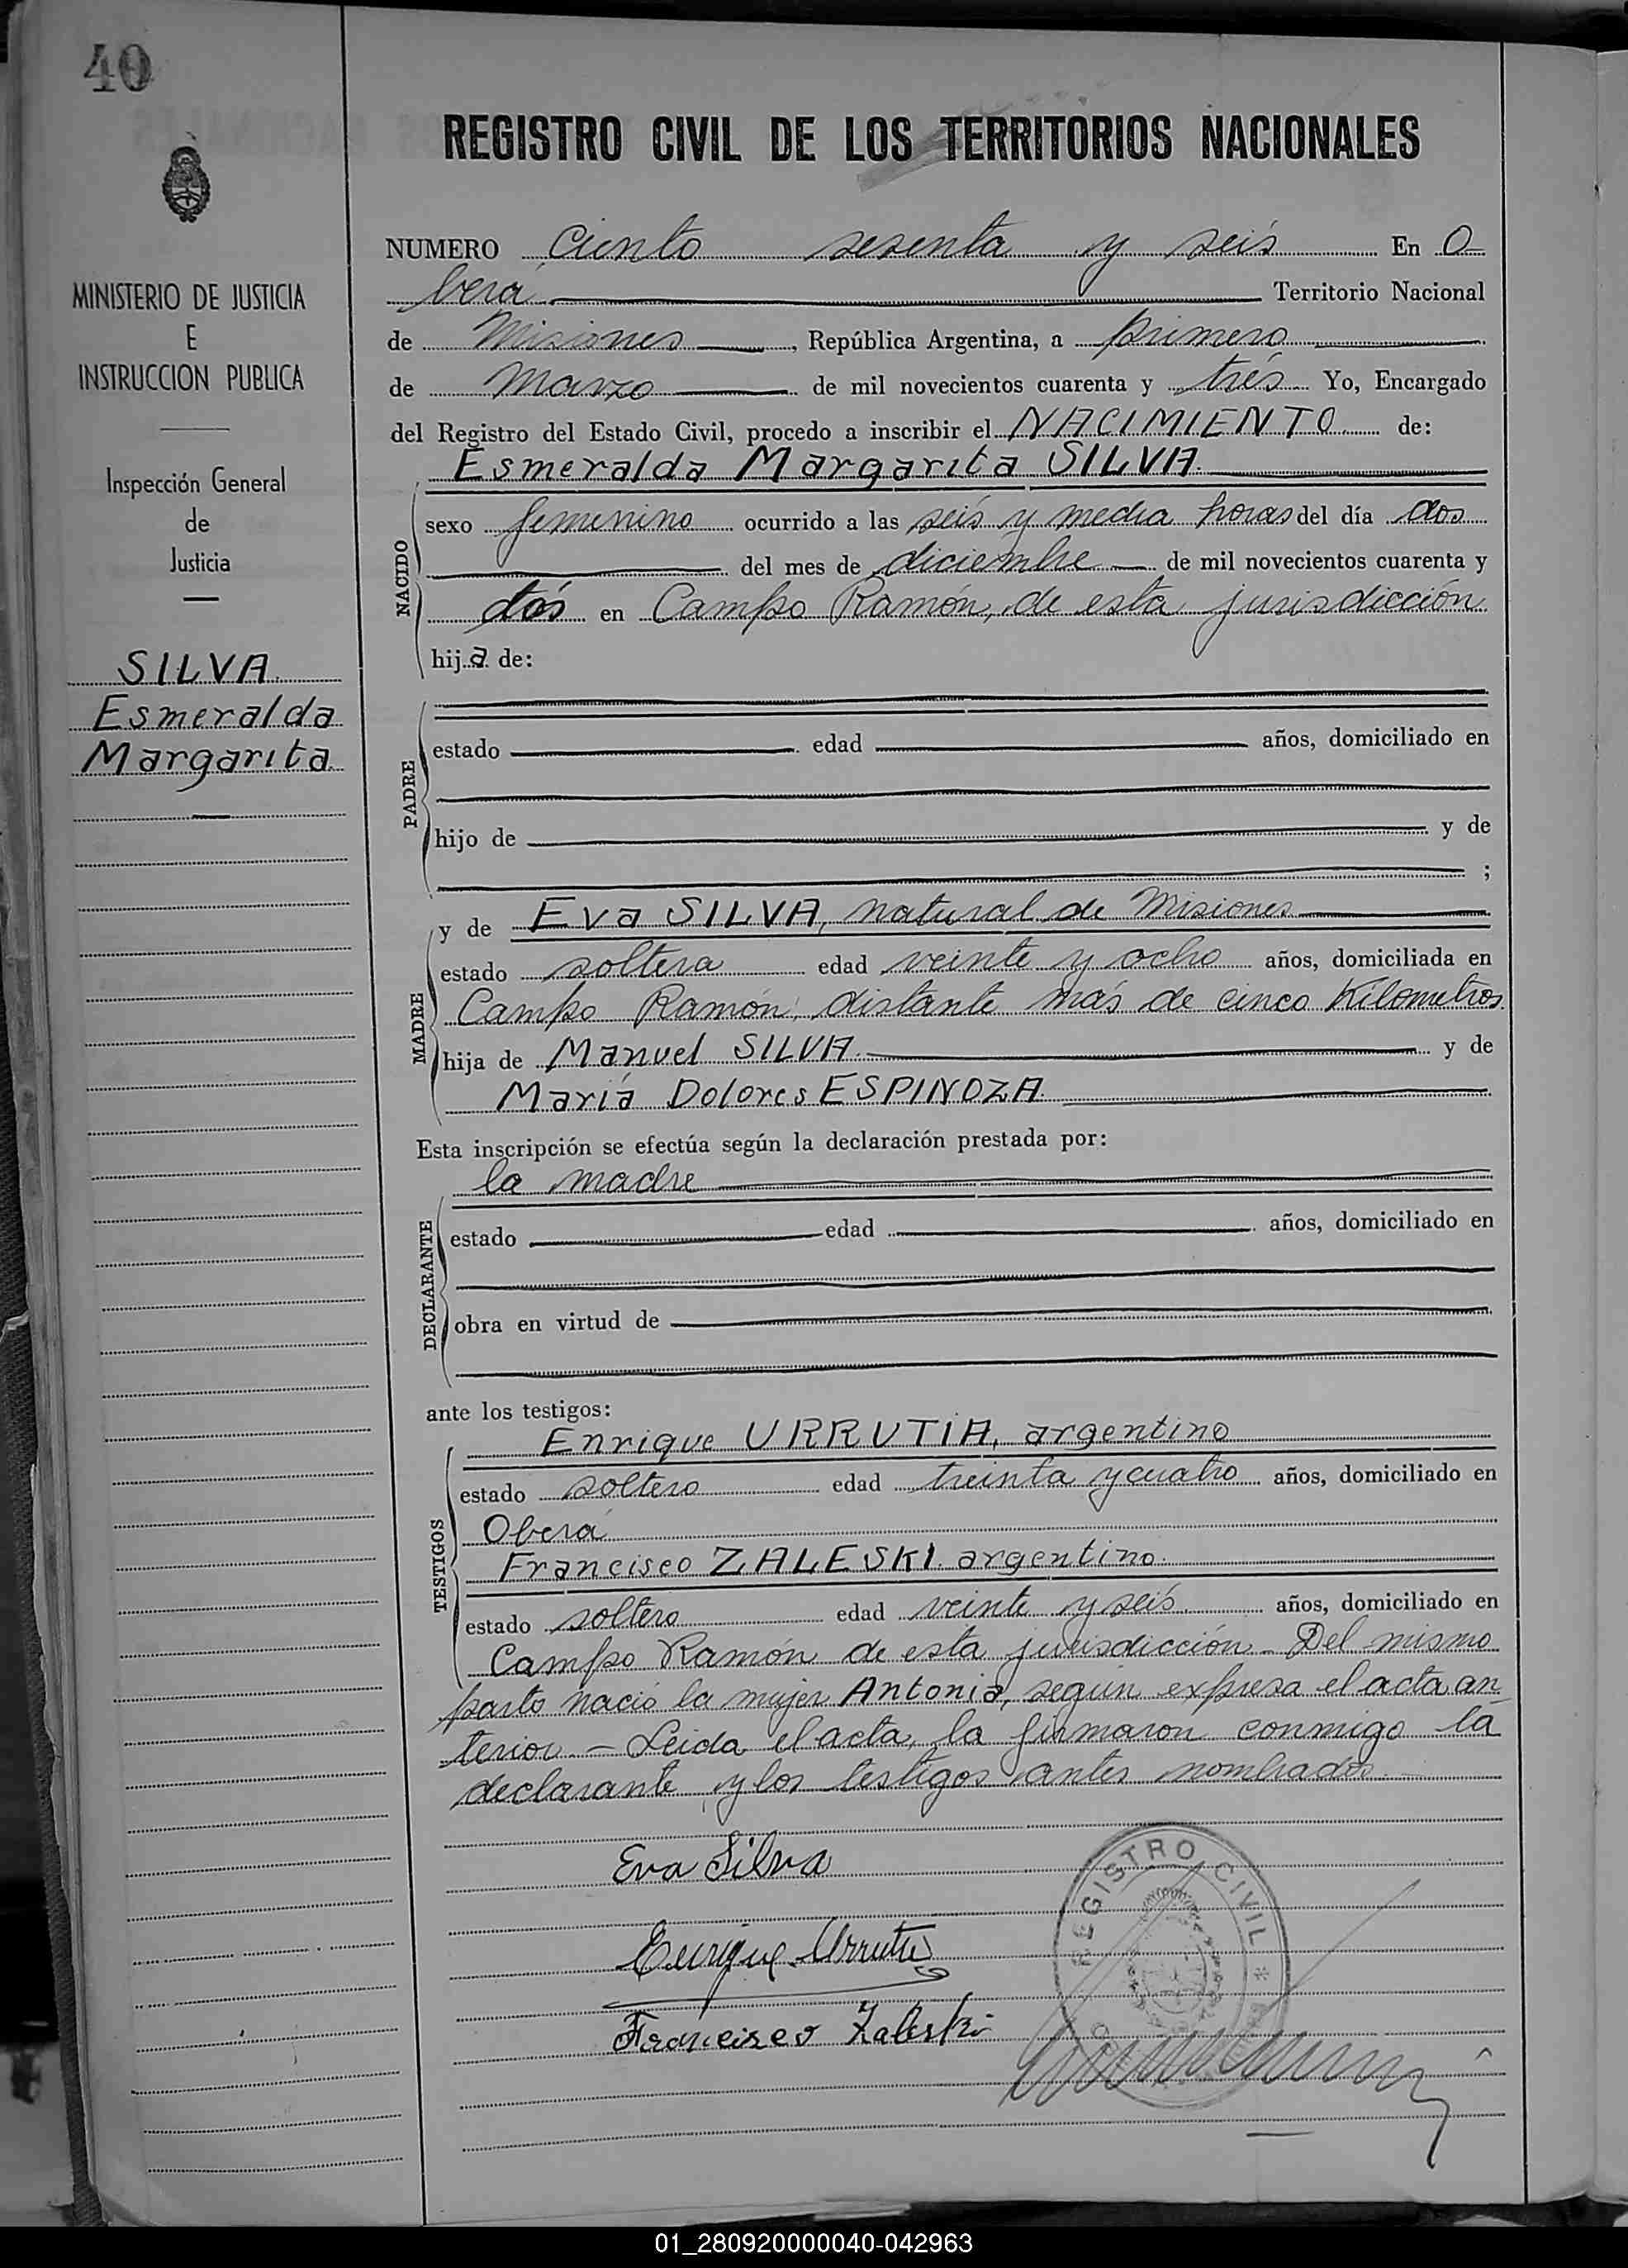 40
MINISTERIO DE JUSTICIA
E
INSTRUCCION PUBLICA
Inspección General
de
Justicia
SILVA
Esmeralda
Margarita
REGISTRO CIVIL DE LOS TERRITORIOS NACIONALES
NUMERO Ciento sesenta y seis En O-
berá Territorio Nacional
de Misiones, República Argentina, a primero
de Marzo de mil novecientos cuarenta y trés Yo, Encargado
del Registro del Estado Civil, procedo a inscribir el NACIMIENTO de:
Esmeralda Margarita SILVA
NACIDO
sexo femenino ocurrido a las seis y media horas del día dos
del mes de diciembre de mil novecientos cuarenta y
dós en Campo Ramón, de esta jurisdicción
hija de:
PADRE
estado edad años, domiciliado en
hijo de y de
;
y de Eva SILVA, natural de Misiones
MADRE
estado soltera edad veinte y ocho años, domiciliada en
Campo Ramón, distante más de cinco Kilometros
hija de Manuel SILVA y de
María Dolores ESPINOZA
Esta inscripción se efectúa según la declaración prestada por:
la madre
DECLARANTE
estado edad años, domiciliado en
obra en virtud de
ante los testigos:
Enrique URRUTIA, argentino
TESTIGOS
estado soltero edad treinta y cuatro años, domiciliado en
Oberá
Francisco ZALESKI argentino
estado soltero edad veinte y seis años, domiciliado en
Campo Ramón de esta jurisdicción - Del mismo
parto nació la mujer Antonia, según expresa el acta an
terior. - Leida el acta, la firmaron conmigo la
declarante y los testigos antes nombrados. -
Eva Silva
Enrique Urrutia
Francisco Zaleski
REGISTRO CIVIL *
01_280920000040-042963